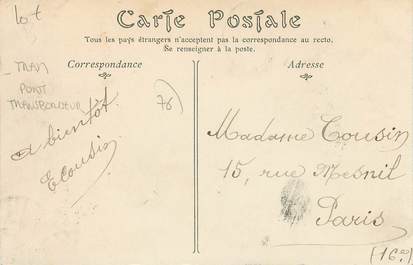 lot
Carte Postale
Tous les pays étrangers n'acceptent pas la correspondance au recto.
Se renseigner à la poste.
Correspondance
Adresse
TRAM
PONT
TRANSBORDEUR
76
a bientôt.
E Cousin
Madame Cousin
15, rue Mesnil
Paris
(16e)